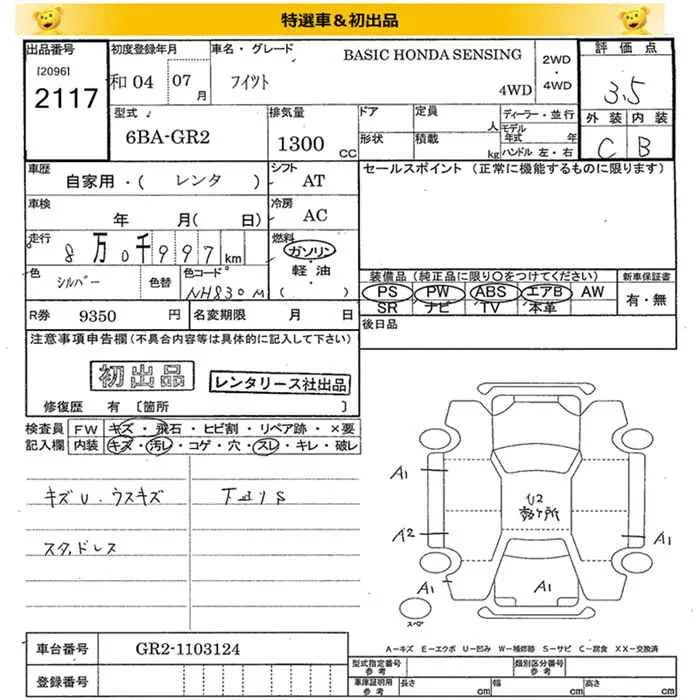 特選車＆初出品
出品番号
[2096]
2117
初度登録年月
和04 07月
車名・グレード
BASIC HONDA SENSING
フィット
4WD
2WD
・
4WD
評価点
3.5
外装 内装
C B
型式
6BA-GR2
排気量
1300 CC
ドア
定員 人
形状
積載 kg
ディーラー・並行
モデル年式 年
ハンドル 左・右
車歴
自家用・( レンタ )
シフト
AT
セールスポイント (正常に機能するものに限ります)
車検
年 月( 日)
冷房
AC
走行
8万0千997km
燃料
ガソリン
・
軽油
( )
色
シルバー
色替
色コード
NH830M
装備品 (純正品に限り○をつけてください)
新車保証書
PS PW ABS エアB AW
SR ナビ TV 本革
有・無
R券 9350 円
名変期限 月 日
後日品
注意事項申告欄(不具合内容等は具体的に記入して下さい)
初出品
レンタリース社出品
修復歴 有 [箇所 ]
検査員記入欄
FW キズ・飛石・ヒビ割・リペア跡・×要
内装 キズ・汚レ・コゲ・穴・スレ・キレ・破レ
キズU.ウスキズ
スタッドレス
A1
A2
A1
U2
A1
A1
スペ
A－キズ E－エクボ U－凹み W－補修跡 S－サビ C－腐食 XX－交換済
車台番号 GR2-1103124
登録番号
型式指定番号
参考
類別区分番号
参考
車庫証明用
参考
長さ cm 幅 cm 高さ cm